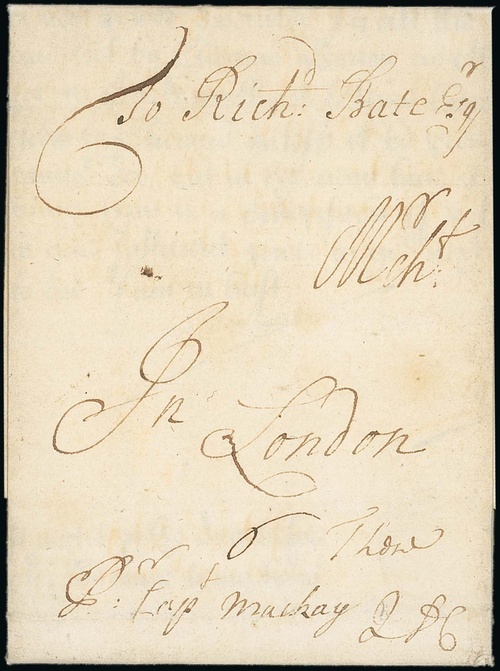 To Rich.d Bate Esq.r
M.rch.t
In London
There
P.r Cap.t Mackay QDC